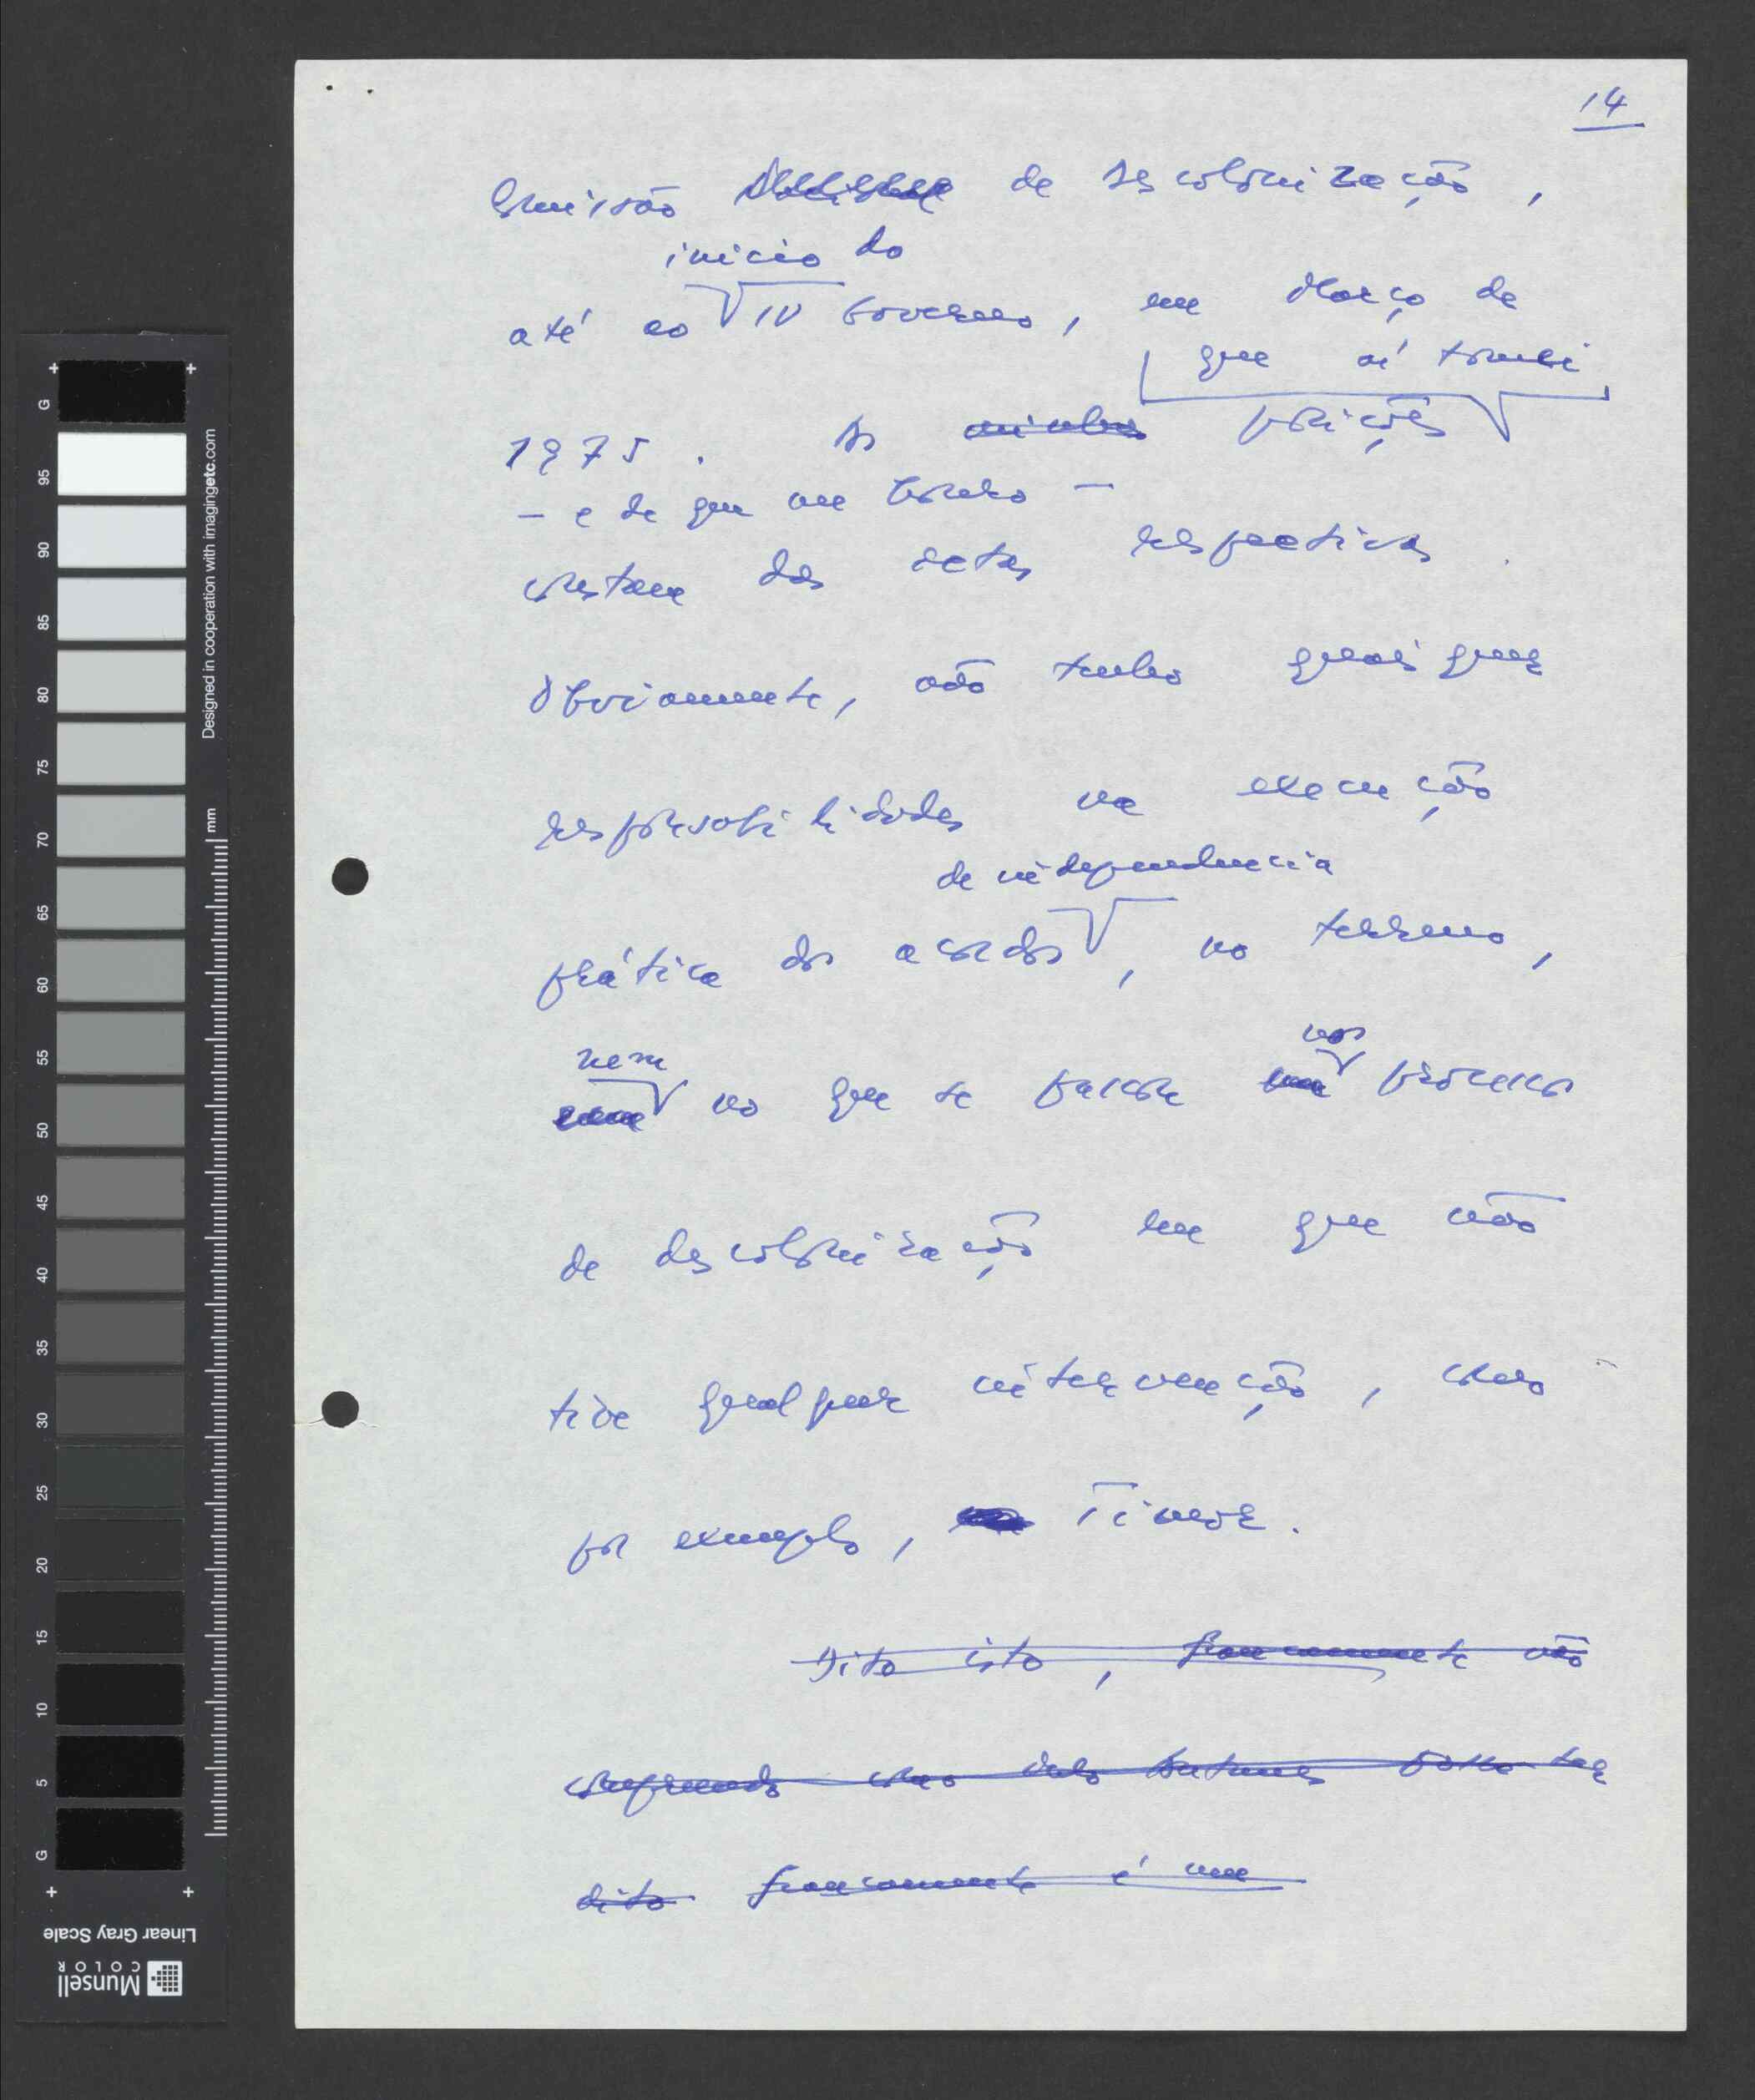 14
Comissão de descolonização,
inicio do
até ao IV Governo, em Março de
que aí tomei
1975. As minhas posições
— e de que me honro —
constam das actas respectivas.
Obviamente, não tenho quaisquer
responsabilidades na execução
de independencia
prática dos acordos, no terreno,
nem nos
no que se passou processos
de descolonização em que não
tive qualquer intervenção, como
por exemplo, Timor.
Dito isto, francamente não
compreendo como Melo Antunes possa ter
dito francamente é um
G 95 90 85 80 75 70 65 60 55 50 45 40 35 30 25 20 15 10 5 G
mm
Designed in cooperation with imagingetc.com
Linear Gray Scale
Munsell
COLOR